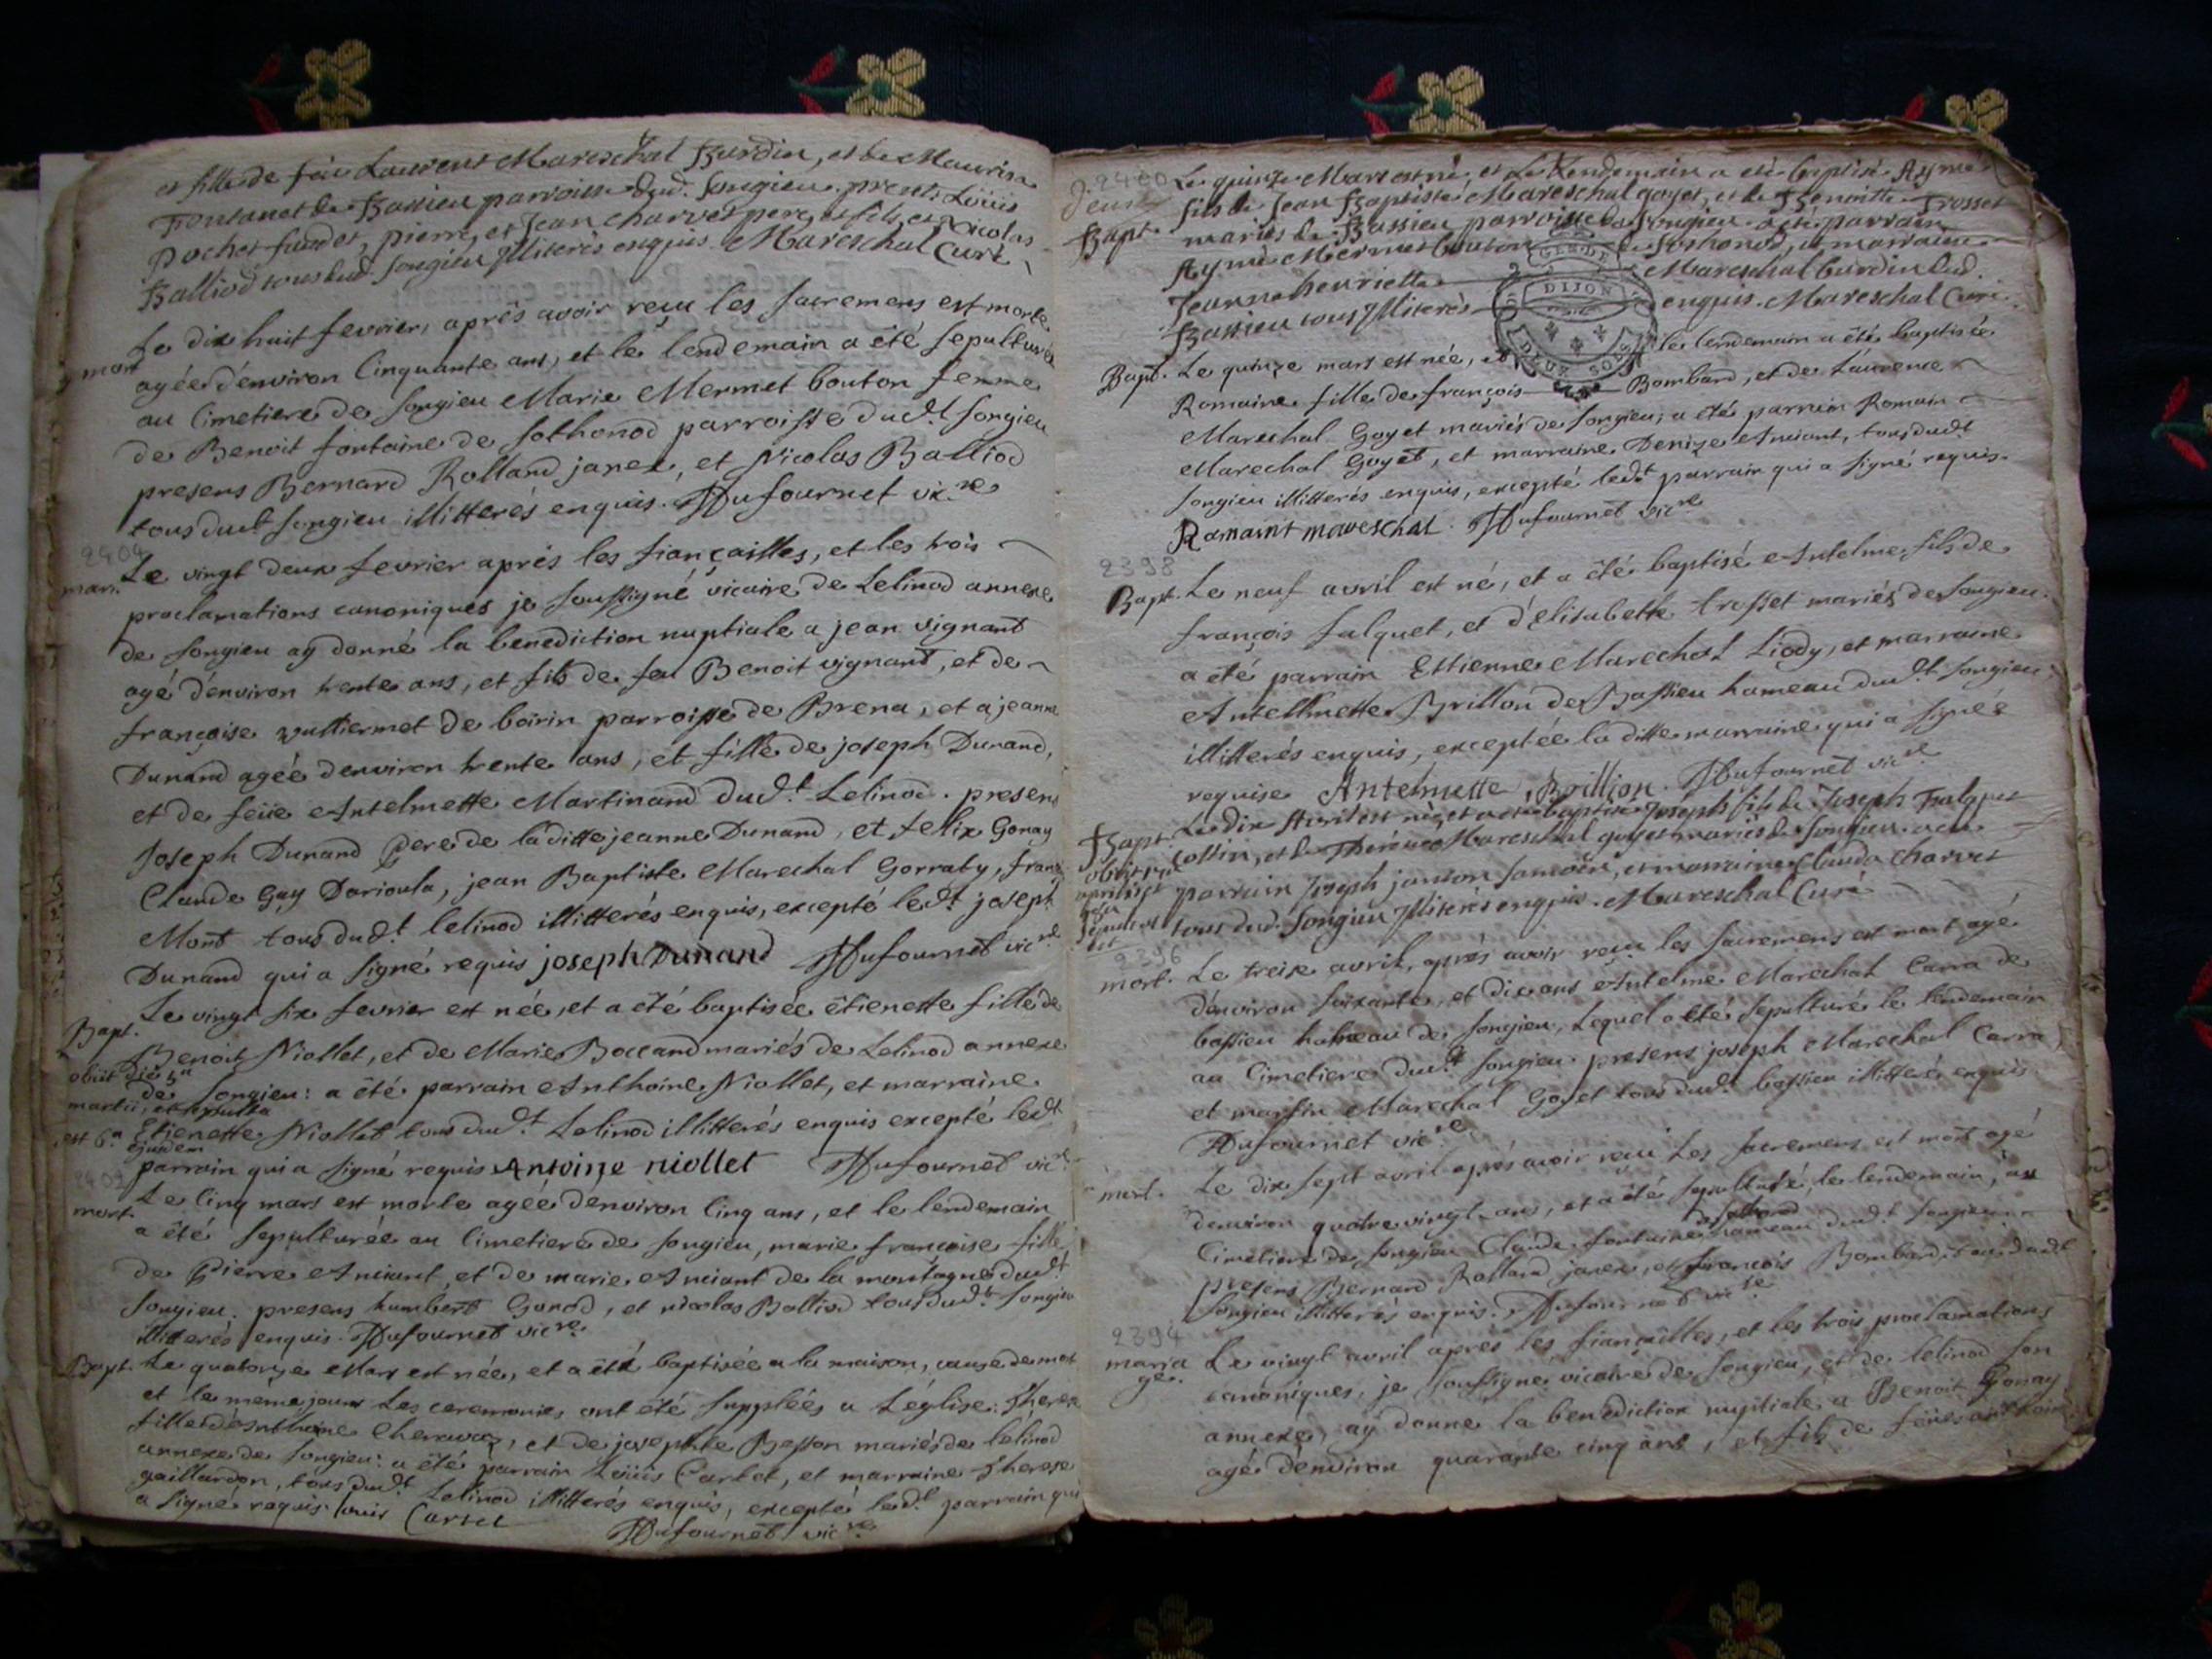 et fille de feu Laurent Mareschal Burdin, et de Maurise
Fontanet de Bassieu parroisse dud. songieu. presents Loüis
Pochet faudet, pierre, et Jean charvet pere, et fils, et Nicolas
Balliod tous dud. songieu Illiterés enquis. Mareschal Curé
mort
Le dix huit fevrier, aprés avoir reçu les sacremens est morte
agée d'environ Cinquante ans, et le lendemain a été sepulturée
au Cimetiere de songieu Marie Mermet bouton femme
de Benoit fontaine de sothonod parroisse dud.t songieu
presens Bernard Rolland janex, et Nicolas Balliod
tous dud.t songieu illitterés enquis. Dufournet vic.re
2404
mar.
Le vingt deux fevrier aprés les fiançailles, et les trois
proclamations canoniques je soussigné vicaire de Lelinod annexe
de songieu ay donné la benediction nuptiale a jean vignant
agé d'environ trente ans, et fils de feu Benoit vignant, et de
françoise vulliermet de boirin parroisse de Brena, et a jeanne
Dunand agée d'environ trente ans, et fille de joseph Dunand,
et de feüe Antelmette Martinand dud.t Lelinod. presens
Joseph Dunand pere de la ditte jeanne Dunand, et felix Gonay
Claude Guy Darioula, jean Baptiste Marechal Gorraty, franç
Mont tous dud.t lelinod illitterés enquis, excepté led.t joseph
Dunand qui a signé requis joseph Dunand Dufournet vic.re
Bapt.
Le vingt six fevrier est née, et a été baptisée étienette fille de
Benoit Niollet, et de Marie Boccand mariés de Lelinod annexe
obiit die 5a
martii, et sepulta
est 6a ejusdem
de songieu: a été parrain Anthoine Niollet, et marraine
Etienette Niollet tous dud.t Lelinod illitterés enquis excepté led.t
parrain qui a signé requis Antoine niollet Dufournet vic.re
mort.
Le Cinq mars est morte agée d'environ Cinq ans, et le lendemain
a été sepulturée au Cimetiere de songieu, marie françoise fille
de Pierre Anciant, et de marie Anciant de la montagne dud.t
songieu. presens humbert Gonod, et nicolas Balliod tous dud.t songieu
illitterés enquis. Dufournet vic.re
Bapt.
Le quatorze Mars est née, et a été baptisée a la maison, cause de mort
et le même jour Les ceremonies ont été supplées a L'église: Therese
fille d'Anthoine Cheravaz, et de josephte Besson mariés de lelinod
annexe de songieu: a été parrain Loüis Carlet, et marraine Therese
gaillardon, tous dud.t Lelinod illitterés enquis, excepté led.t parrain qui
a signé requis. louis Carlet
Dufournet vic.re
2400
Bapt.
Le quinze Mars est né, et Le Lendemain a été baptisé Aymé
fils de Jean Baptiste Mareschal goyet, et de Benoitte Trosset
mariés de Bassieu parroisse de songieu. a été parrain
Aymé Mermet bouton de sothonod, et marraine
Jeanne henriette Mareschal burdin dud.
Bassieu tous Illiterés enquis. Mareschal Curé
GEN. DE
DIJON
DEUX SOLS
Bapt.
Le quinze mars est née, et le lendemain a été baptisée
Romaine fille de françois Bombard, et de Laurence
Marechal Goyet mariés de songieu; a été parrain Romain
Marechal Goyet, et marraine Denize Anciant, tous dud.t
songieu illitterés enquis, excepté led.t parrain qui a signé requis.
Romaint mareschal. Dufournet vic.re
2398
Bapt.
Le neuf avril est né, et a été baptisé Antelme fils de
françois falquet, et d'elisabette trosset mariés de songieu
a été parrain Estienne Marechal Liody, et marraine
Antelmette Brillion de Bassieu hameau dud.t songieu
illitterés enquis, exceptée la ditte marraine qui a signée
requise Antelmette Brillion. Dufournet vic.re
Bapt.
Le dix Avril est né, et a été baptisé Joseph fils de Joseph Falquet
Collin, et de Thérése Mareschal goyet mariés de songieu. a été
parrain Joseph janton, et marraine Clauda Charvet
tous dud. songieu Illiterés enquis. Mareschal Curé
2396
mort.
Le treize avril, aprés avoir reçu les sacremens est mort agé
d'environ soixante, et dix ans Antelme Marechal Carra de
bassieu hameau de songieu, Lequel a été sepulturé le lendemain
au Cimetiere dud.t songieu. presens joseph Marechal Carra
et martin Marechal Goyet tous dud.t bassieu illitterés enquis
Dufournet vic.re
mort.
Le dix sept avril aprés avoir reçu Les sacremens est mort agé
d'environ quatre vingt ans, et a été sepulturé, le lendemain, au
Cimetiere de songieu Claude fontaine de sothonod hameau dud.t songieu
presens Bernard Rolland janex, et françois Bombard tous dud.t
songieu illitterés enquis. Dufournet vic.re
2394
maria
ge.
Le vingt avril aprés les fiançailles, et les trois proclamations
canoniques, je soussigné vicaire de songieu, et de lelinod son
annexe, ay donné la benediction nuptiale a Benoit Gonay
agé d'environ quarante cinq ans, et fils de feüs anthoine